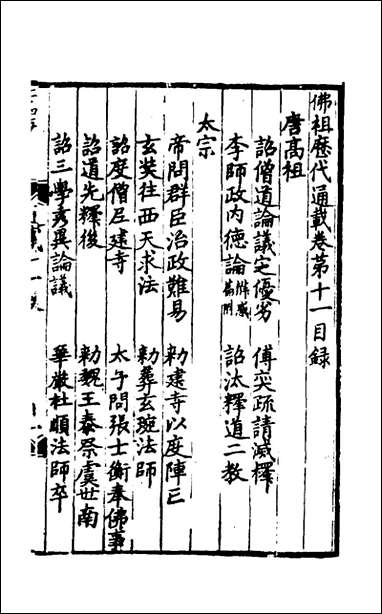 佛祖歷代通載卷第十一目錄
唐高祖
詔僧道論議定優劣　傅奕疏請滅釋
李師政內德論　詔汰釋道二教
太宗
帝問群臣治政難易　勑建寺以度陣亡
玄奘往西天求法　勑葬玄琬法師
詔度僧尼建寺　太子問張士衡奉佛事
詔道先釋後　勑魏王泰祭虞世南
詔三學秀異論議　華嚴杜順法師卒